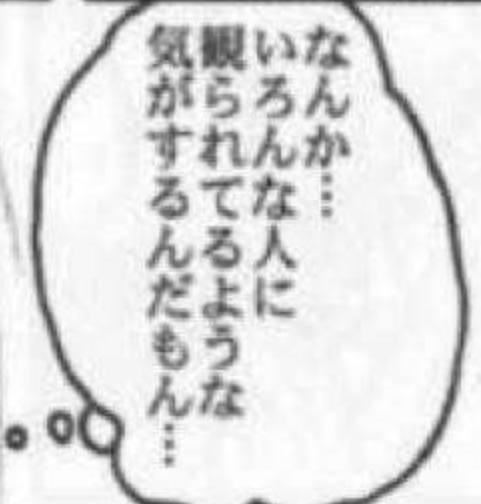 なんか…
いろんな人に
観られてるような
気がするんだもん…